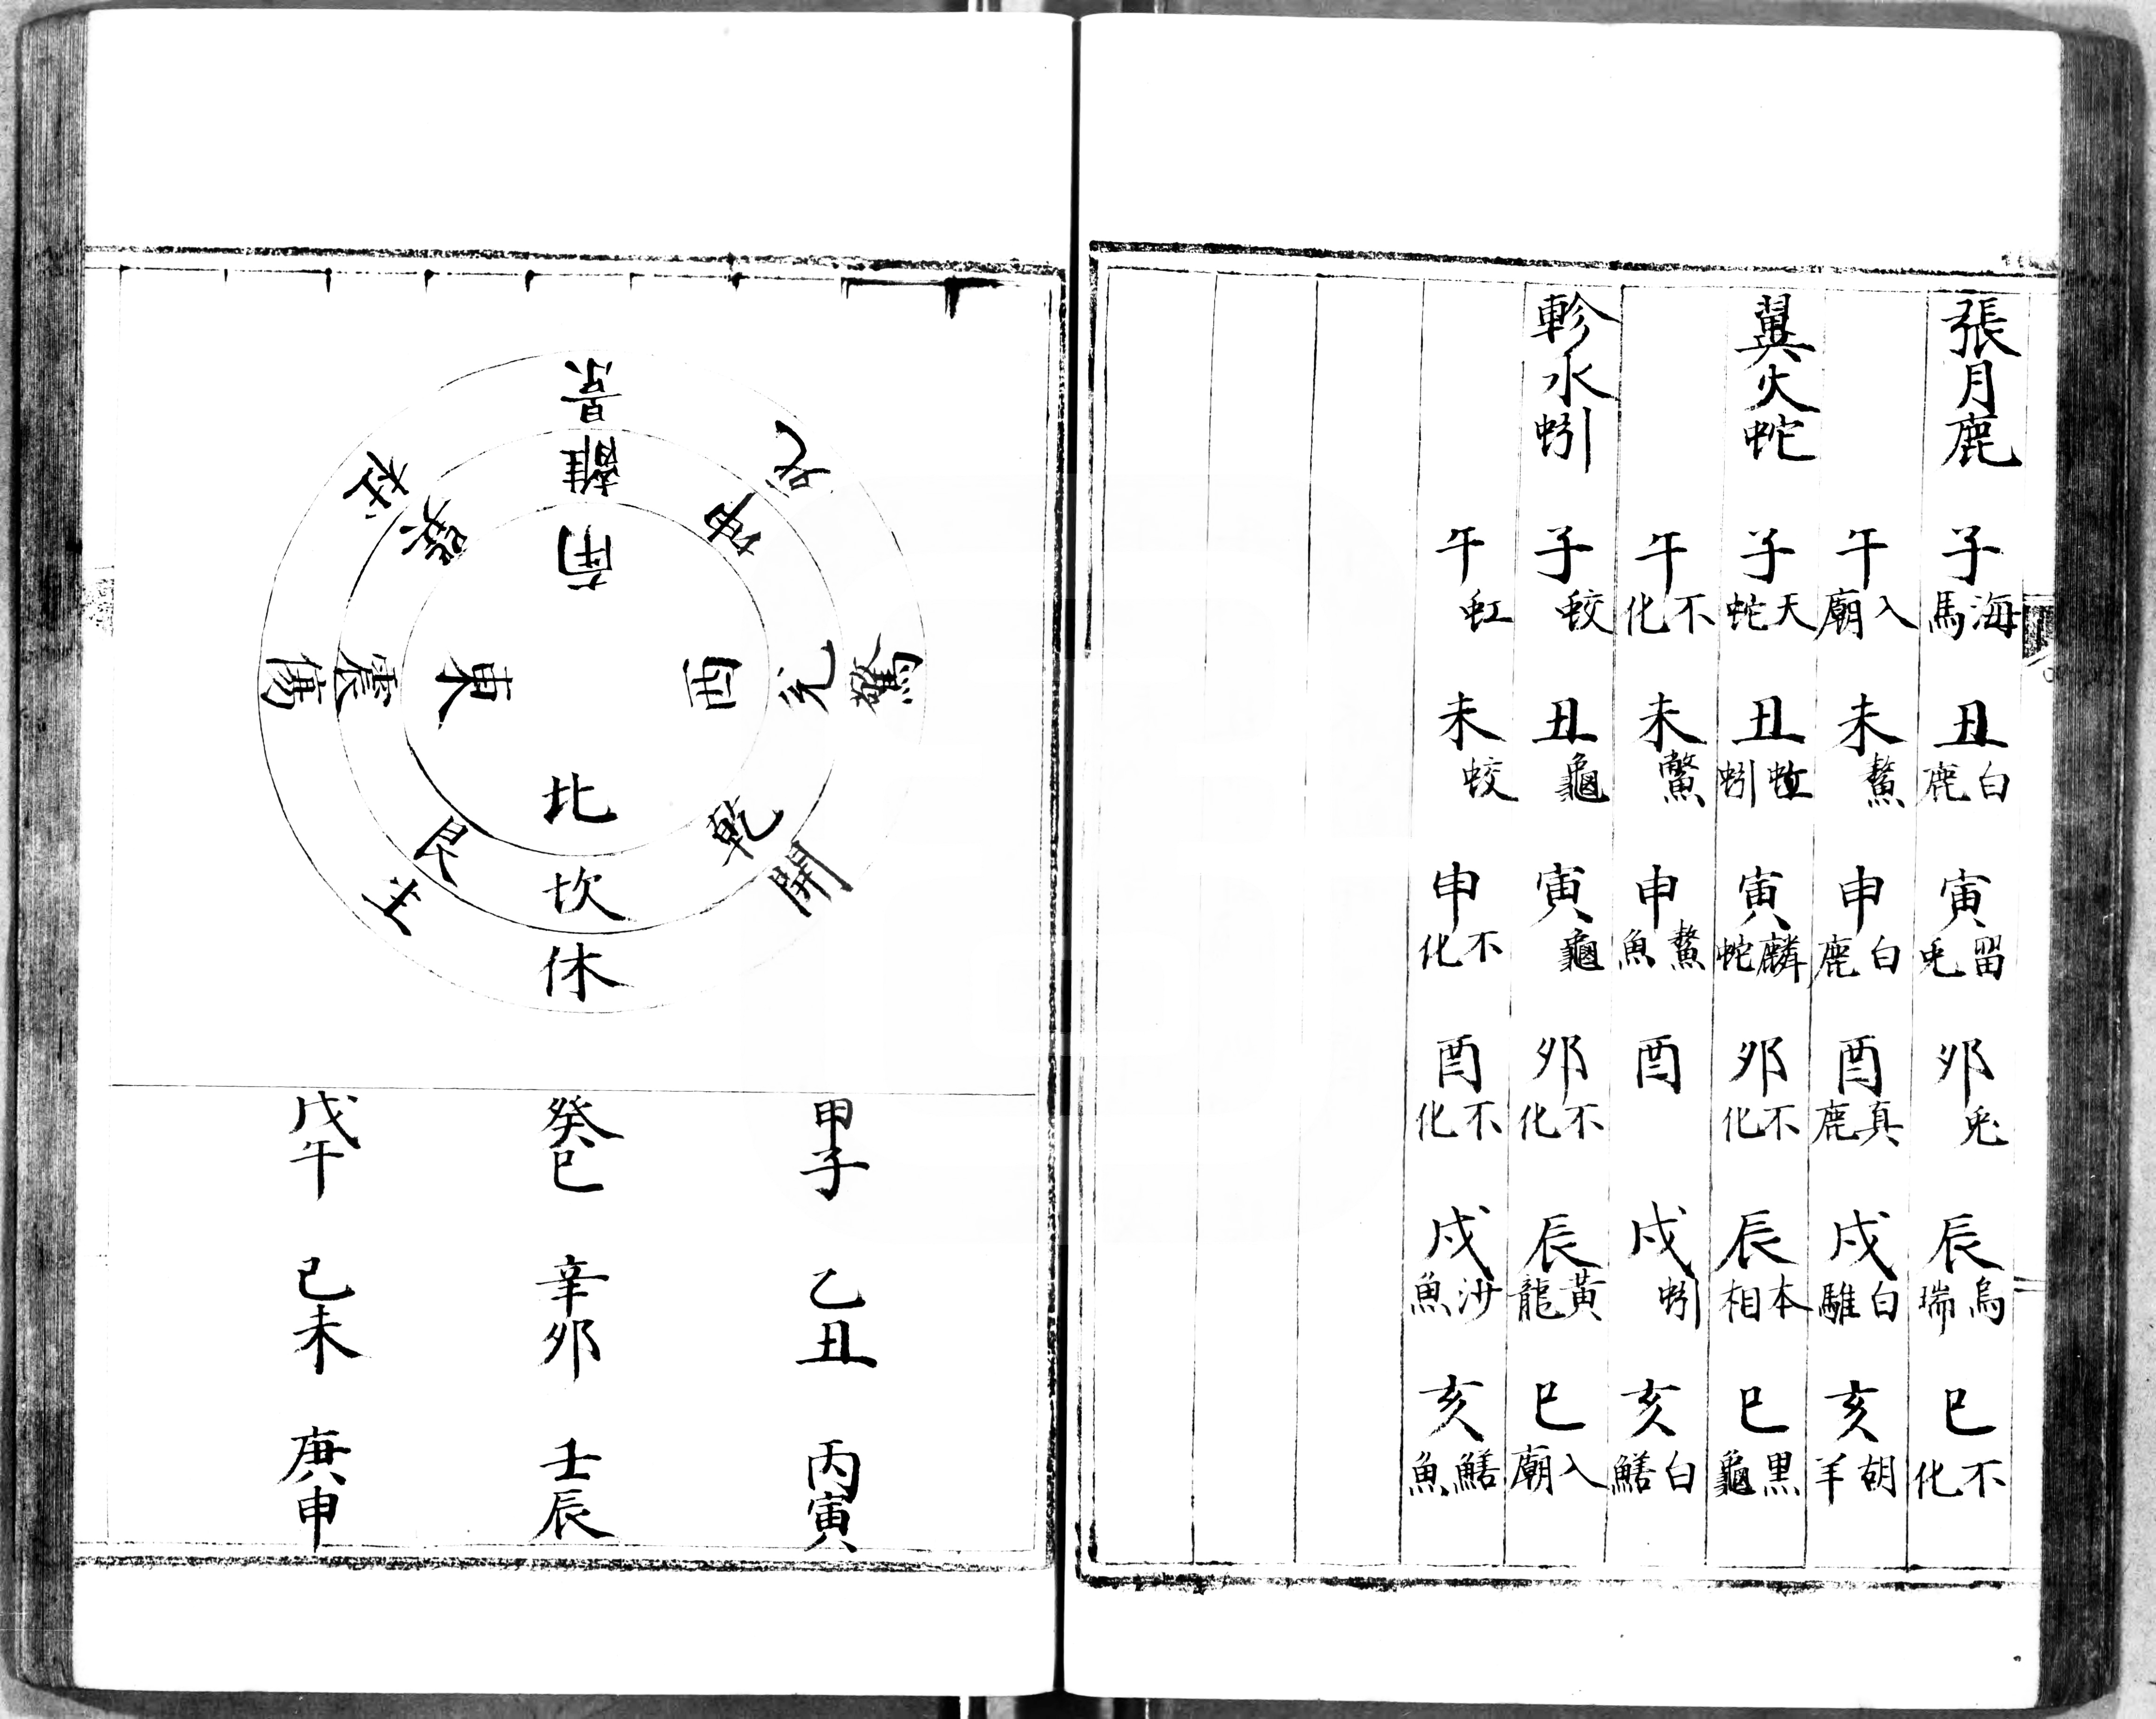 張月鹿 子海馬 丑白鹿 寅留兎 夘兎 辰烏瑞 巳不化
午入廟 未鰲 申白鹿 酉真鹿 戌白騅 亥胡羊
翼火蛇 子天蛇 丑蚯蚓 寅麟蛇 夘不化 辰本相 巳黒龜
午不化 未鱉 申鰲魚 酉 戌蚓 亥白鱔
軫水蚓 子蛟 丑龜 寅龜 夘不化 辰黃龍 巳入廟
午虹 未蛟 申不化 酉不化 戌沙魚 亥鱔魚
南 離 景
坤
西 兌 驚
乾 開
北 坎 休
艮 生
東 震 傷
巽 杜
甲子 乙丑 丙寅
癸巳 辛夘 壬辰
戊午 己未 庚申